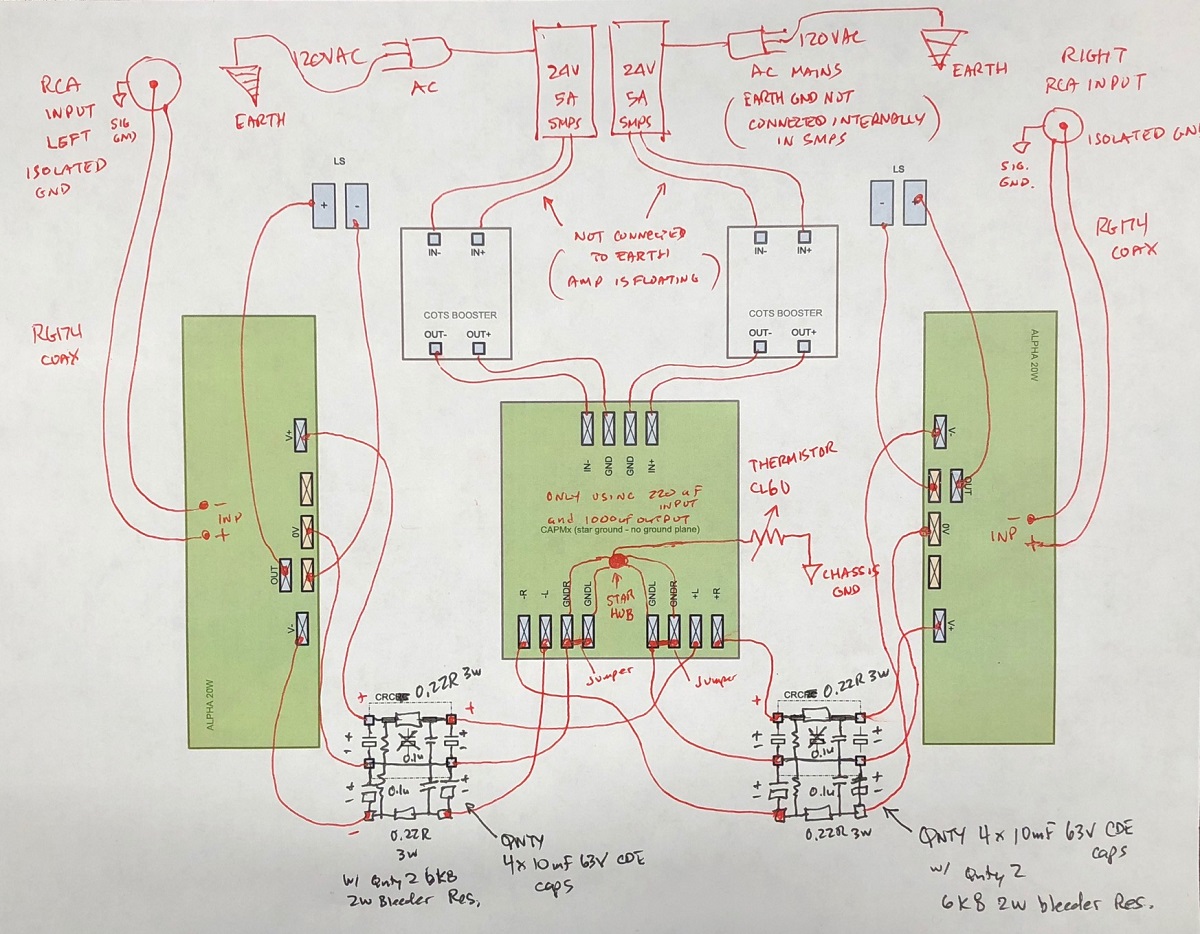 RCA
INPUT
LEFT
ISOLATED
GND
SIG
GND
EARTH
120VAC
AC
24V
5A
SMPS
24V
5A
SMPS
120VAC
AC MAINS
EARTH GND NOT
CONNECTED INTERNALLY
IN SMPS
EARTH
RIGHT
RCA INPUT
ISOLATED GN
SIG.
GND.
RG174
COAX
LS
+
-
LS
-
+
NOT CONNECTED
TO EARTH
AMP IS FLOATING
IN-
IN+
COTS BOOSTER
OUT-
OUT+
IN-
IN+
COTS BOOSTER
OUT-
OUT+
RG174
COAX
V+
-
INP
+
0V
OUT
V-
ALPHA 20W
IN-
GND
GND
IN+
ONLY USING 220uF
INPUT
and 1000uF OUTPUT
CAPMx (star ground - no ground plane)
STAR
HUB
-R
-L
GNDR
GNDL
GNDL
GNDR
+L
+R
Jumper
Jumper
THERMISTOR
CL60
CHASSIS
GND
ALPHA 20W
V-
OUT
0V
-
INP
+
V+
CRC
0.22R 3W
+
+
0.1u
0.1u
-
0.22R
3W
W/ Qnty 2 6K8
2W Bleeder Res.
QNTY
4x10mF 63V CDE
caps
CRC
0.22R 3W
+
0.1u
0.1u
0.22R 3W
QNTY 4x10mF 63V CDE
caps
W/ Qnty 2
6K8 2W bleeder Res.